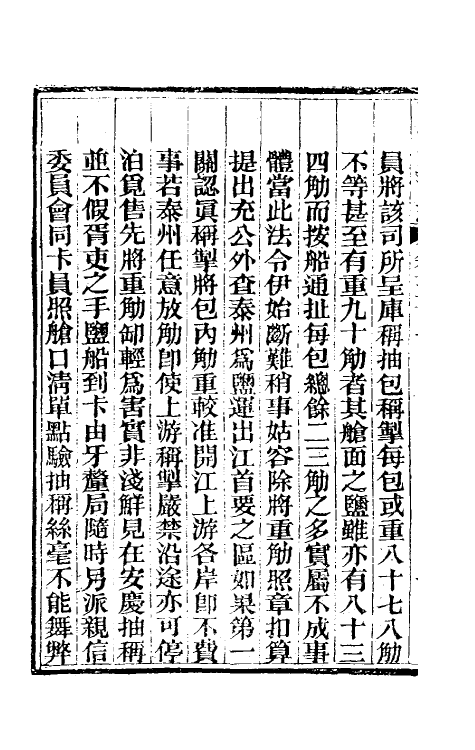 員將該司所呈庫稱抽包稱掣每包或重八十七八觔
不等甚至有重九十觔者其艙面之鹽雖亦有八十三
四觔而按船通扯每包總餘二三觔之多實屬不成事
體當此法令伊始斷難稍事姑容除將重觔照章扣算
提出充公外查泰州爲鹽運出江首要之區如果第一
關認眞稱掣將包內觔重較准開江上游各岸卽不費
事若泰州任意放觔卽使上游稱掣嚴禁沿途亦可停
泊覓售先將重觔卸輕爲害實非淺鮮見在安慶抽稱
並不假胥吏之手鹽船到卡由牙釐局隨時另派親信
委員會同卡員照艙口淸單點驗抽稱絲毫不能舞弊